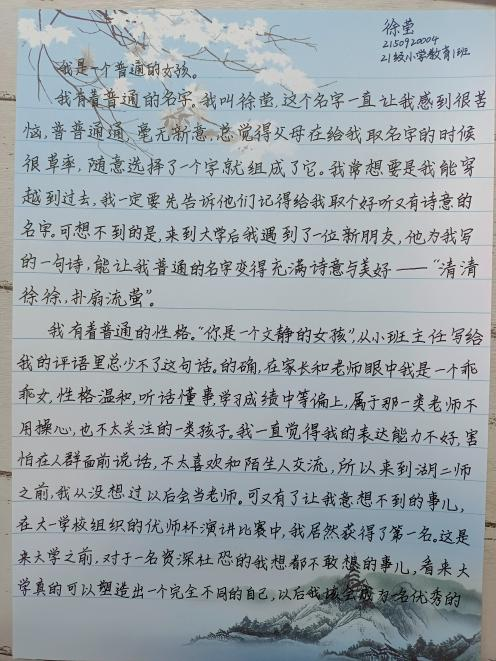 徐莹
2150920004
21级小学教育1班
我是一个普通的女孩。
我有着普通的名字。我叫徐莹，这个名字一直让我感到很苦
恼，普普通通，毫无新意，总觉得父母在给我取名字的时候
很草率，随意选择了一个字就组成了它。我常想要是我能穿
越到过去，我一定要先告诉他们记得给我取个好听又有诗意的
名字。可想不到的是，来到大学后我遇到了一位新朋友，他为我写
的一句诗，能让我普通的名字变得充满诗意与美好——“清清
徐徐，扑扇流萤”。
我有着普通的性格。“你是一个文静的女孩”，从小班主任写给
我的评语里总少不了这句话。的确，在家长和老师眼中我是一个乖
乖女，性格温和，听话懂事，学习成绩中等偏上，属于那一类老师不
用操心，也不太关注的一类孩子。我一直觉得我的表达能力不好，害
怕在人群面前说话，不太喜欢和陌生人交流，所以来到湖二师
之前，我从没想过以后会当老师。可又有了让我意想不到的事儿，
在大一学校组织的优师杯演讲比赛中，我居然获得了第一名。这是
来大学之前，对于一名资深社恐的我想都不敢想的事儿，看来大
学真的可以塑造出一个完全不同的自己，以后我该会成为一名优秀的